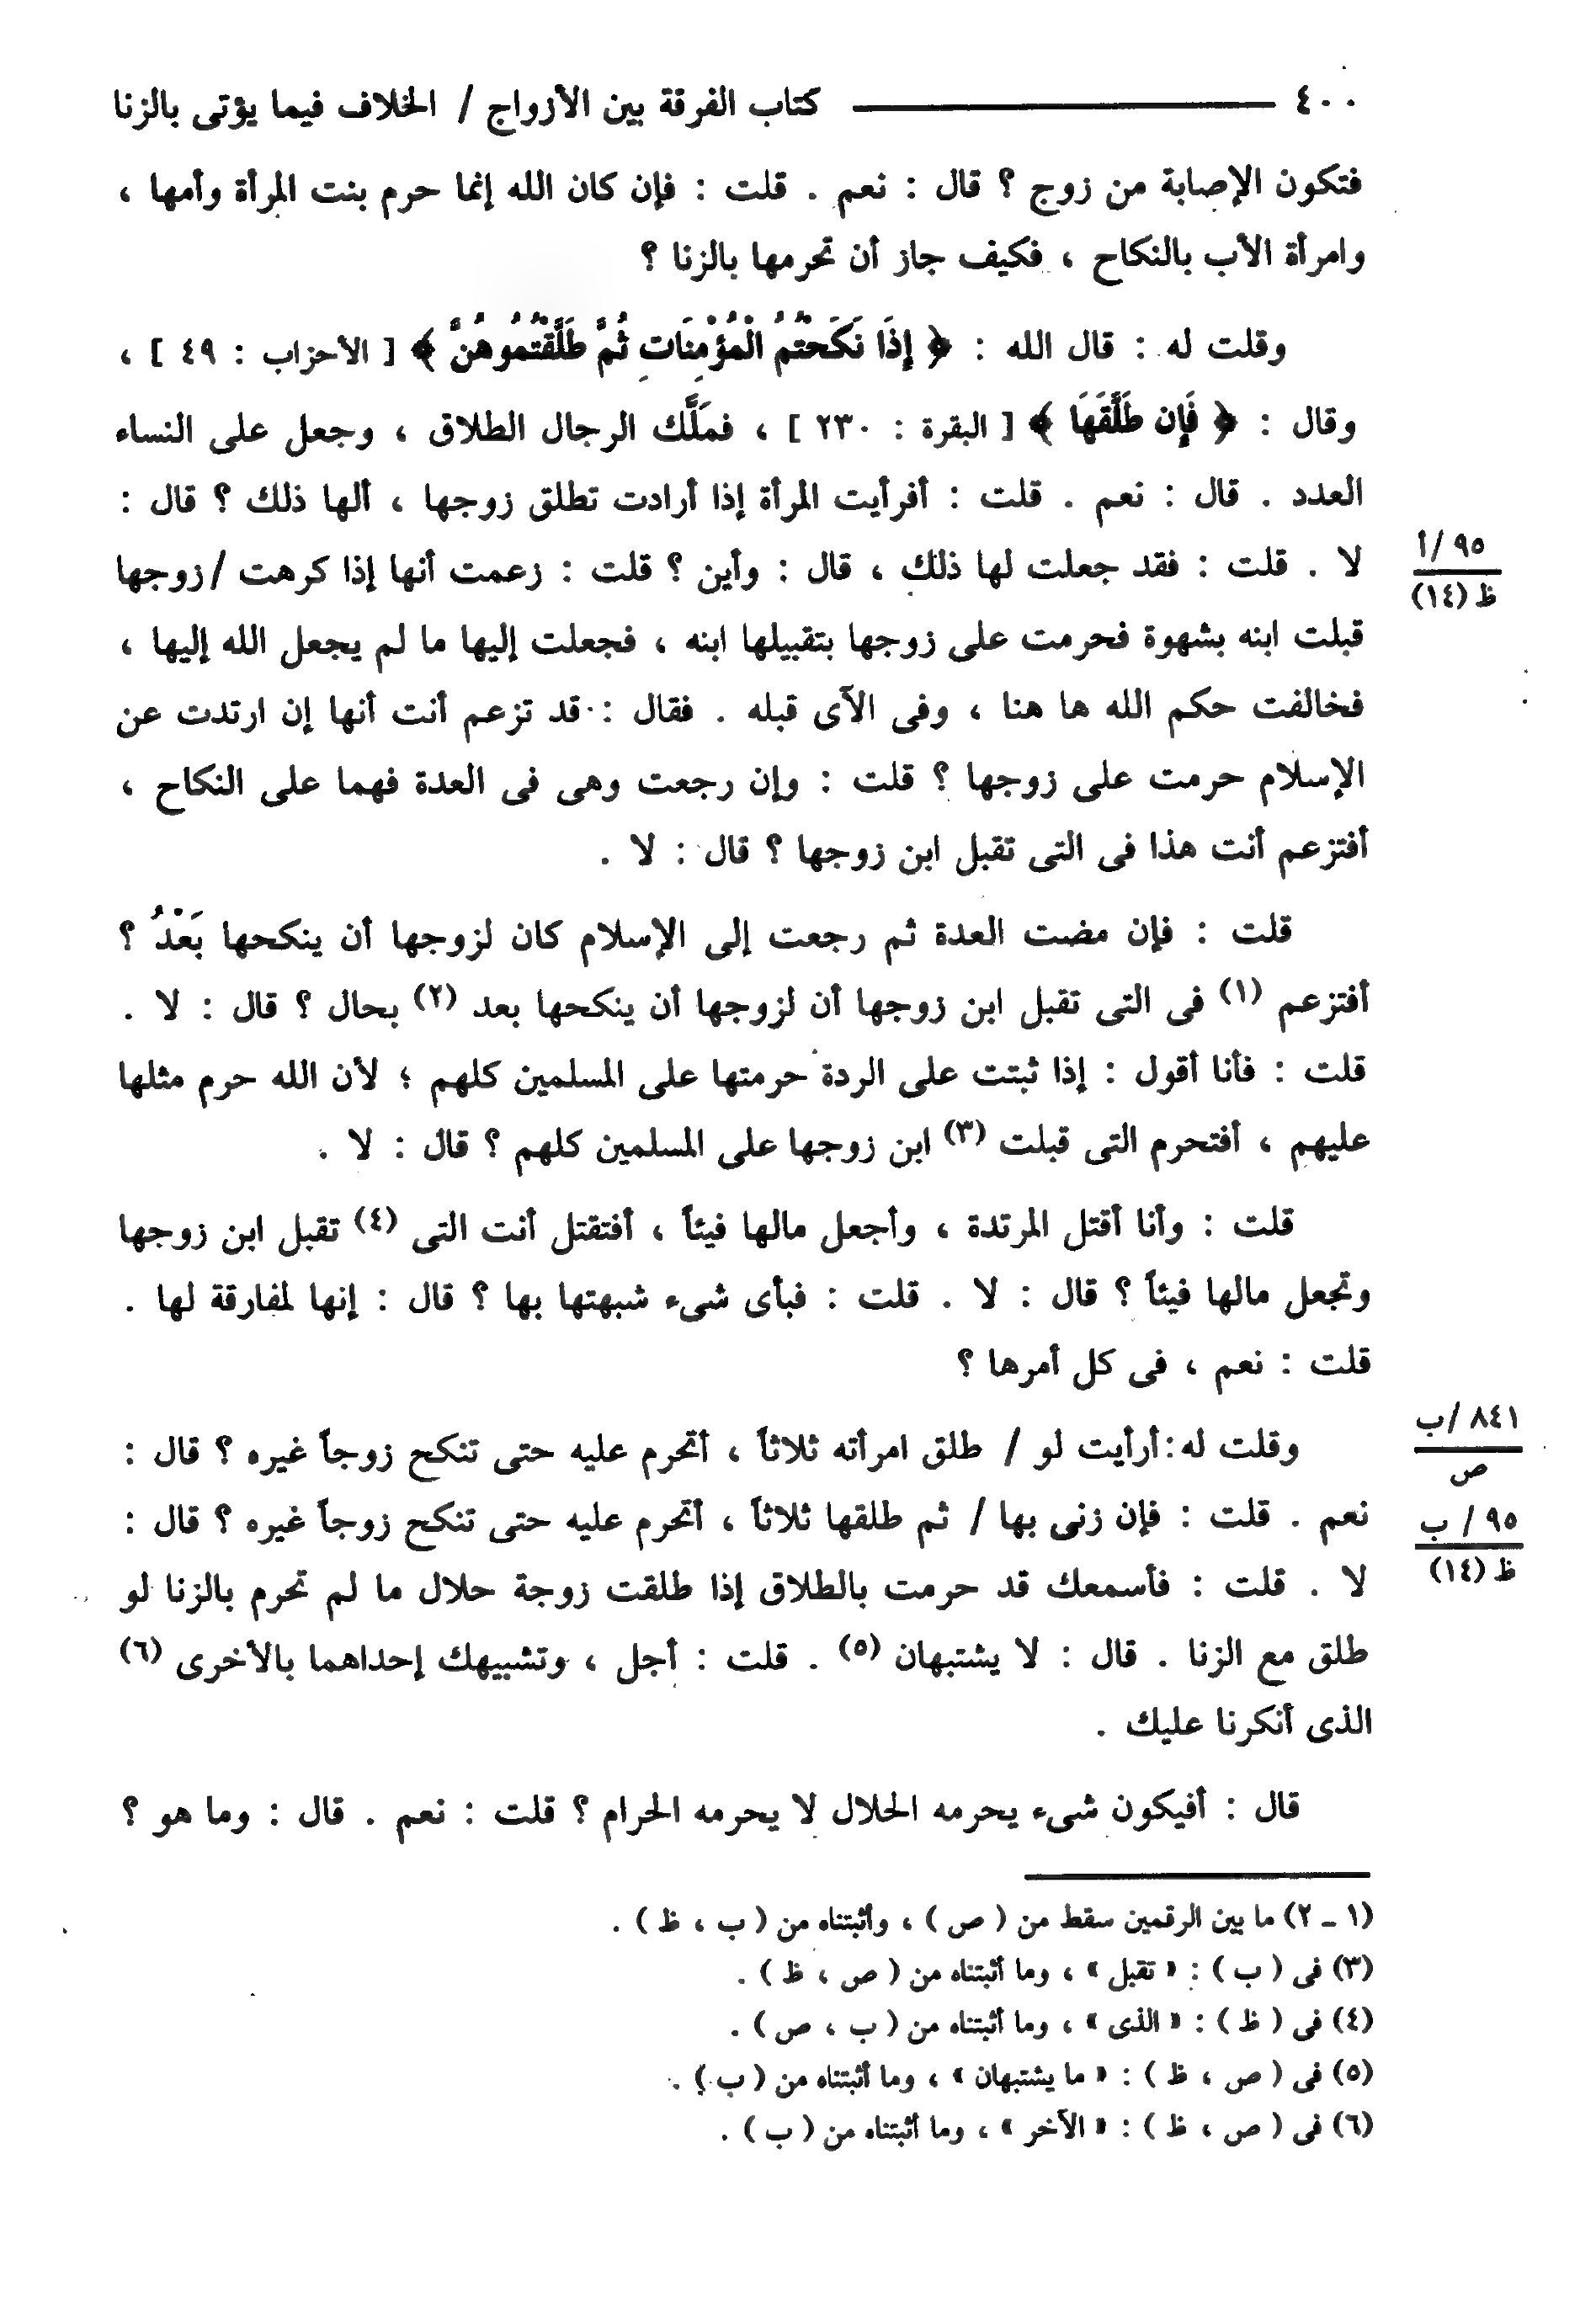 ٤٠٠ كتاب الفرقة بين الأزواج / الخلاف فيما يؤتى بالزنا
فتكون الإصابة من زوج ؟ قال : نعم . قلت : فإن كان الله إنما حرم بنت المرأة وأمها ،
وامرأة الأب بالنكاح ، فكيف جاز أن تحرمها بالزنا ؟
وقلت له : قال الله : ﴿ إِذَا نَكَحْتُمُ الْمُؤْمِنَاتِ ثُمَّ طَلَّقْتُمُوهُنَّ ﴾ [ الأحزاب : ٤٩ ] ،
وقال : ﴿ فَإِن طَلَّقَهَا ﴾ [ البقرة : ٢٣٠ ] ، فملَّك الرجال الطلاق ، وجعل على النساء
العدد . قال : نعم . قلت : أفرأيت المرأة إذا أرادت تطلق زوجها ، ألها ذلك ؟ قال :
لا . قلت : فقد جعلت لها ذلك ، قال : وأين ؟ قلت : زعمت أنها إذا كرهت /زوجها
٩٥ /أ
ظ (١٤)
قبلت ابنه بشهوة فحرمت على زوجها بتقبيلها ابنه ، فجعلت إليها ما لم يجعل الله إليها ،
فخالفت حكم الله ها هنا ، وفى الآى قبله . فقال : قد تزعم أنت أنها إن ارتدت عن
الإسلام حرمت على زوجها ؟ قلت : وإن رجعت وهى فى العدة فهما على النكاح ،
أفتزعم أنت هذا فى التى تقبل ابن زوجها ؟ قال : لا .
قلت : فإن مضت العدة ثم رجعت إلى الإسلام كان لزوجها أن ينكحها بَعْدُ ؟
أفتزعم (١) فى التى تقبل ابن زوجها أن لزوجها أن ينكحها بعد (٢) بحال ؟ قال : لا .
قلت : فأنا أقول : إذا ثبتت على الردة حرمتها على المسلمين كلهم ؛ لأن الله حرم مثلها
عليهم ، أفتحرم التى قبلت (٣) ابن زوجها على المسلمين كلهم ؟ قال : لا .
قلت : وأنا أقتل المرتدة ، وأجعل مالها فيئاً ، أفتقتل أنت التى (٤) تقبل ابن زوجها
وتجعل مالها فيئاً ؟ قال : لا . قلت : فبأى شىء شبهتها بها ؟ قال : إنها لمفارقة لها .
قلت : نعم ، فى كل أمرها ؟
وقلت له : أرأيت لو / طلق امرأته ثلاثاً ، أتحرم عليه حتى تنكح زوجاً غيره ؟ قال :
٨٤١ /ب
ص
نعم . قلت : فإن زنى بها / ثم طلقها ثلاثاً ، أتحرم عليه حتى تنكح زوجاً غيره ؟ قال :
٩٥ / ب
ظ (١٤)
لا . قلت : فأسمعك قد حرمت بالطلاق إذا طلقت زوجة حلال ما لم تحرم بالزنا لو
طلق مع الزنا . قال : لا يشتبهان (٥) . قلت : أجل ، وتشبيهك إحداهما بالأخرى (٦)
الذى أنكرنا عليك .
قال : أفيكون شىء يحرمه الحلال لا يحرمه الحرام ؟ قلت : نعم . قال : وما هو ؟
(١ ــ ٢) ما بين الرقمين سقط من ( ص ) ، وأثبتناه من ( ب ، ظ ) .
(٣) فى ( ب ) : « تقبل » ، وما أثبتناه من ( ص ، ظ ) .
(٤) فى ( ظ ) : « الذى » ، وما أثبتناه من ( ب ، ص ) .
(٥) فى ( ص ، ظ ) : « ما يشتبهان » ، وما أثبتناه من ( ب ) .
(٦) فى ( ص ، ظ ) : « الآخر » ، وما أثبتناه من ( ب ) .